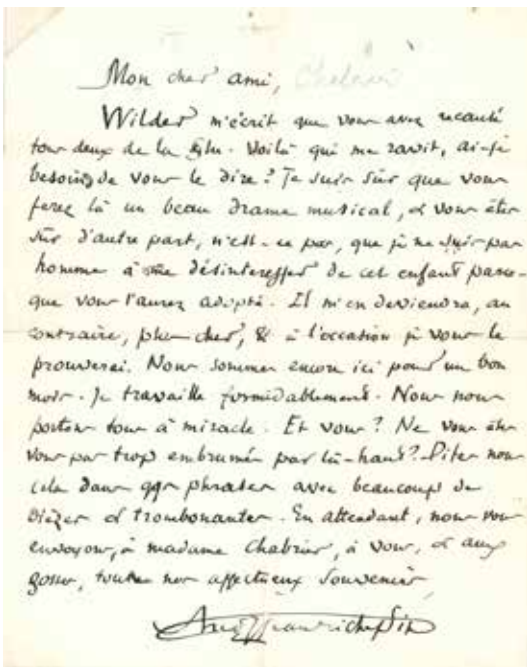 Mon cher ami, Chabrier
Wilder m'écrit que vous avez recausé
tous deux de la Glu. Voilà qui me ravit, ai-je
besoin de vous le dire ? Je suis sûr que vous
ferez là un beau drame musical, & vous êtes
sûr d'autre part, n'est-ce pas, que je ne suis pas
homme à me désintéresser de cet enfant parce-
que vous l'aurez adopté. Il m'en deviendra, au
contraire, plus cher, & à l'occasion je vous le
prouverai. Nous sommes encore ici pour un bon
mois. Je travaille formidablement. Nous nous
portons tous à miracle. Et vous ? Ne vous êtes
vous pas trop embrumés par là-haut ? Dites nous
cela dans qqs phrases avec beaucoup de
dièzes & trombonantes. En attendant, nous vous
envoyons, à madame Chabrier, à vous, & aux
gosses, toutes nos affectueux souvenirs
Jean Richepin